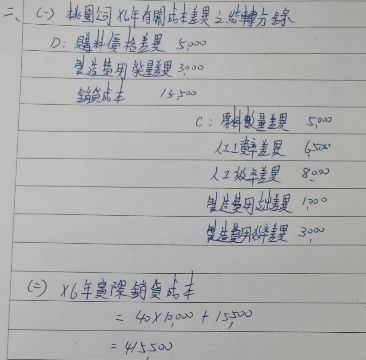 二、(一) 桃園公司X6年有關成本差異之結轉分錄
D: 購料價格差異 5,000
製造費用能量差異 3,000
銷貨成本 15,500
C: 原料數量差異 5,000
人工工資率差異 6,500
人工效率差異 8,000
製造費用支出差異 1,000
製造費用效率差異 3,000
(二) X6年實際銷貨成本
= 40×10,000 + 15,500
= 415,500